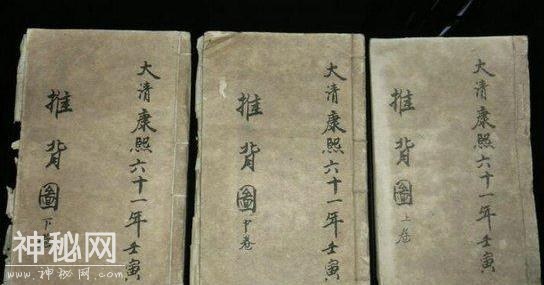 大清康熙六十一年壬寅
推背圖上卷
大清康熙六十一年壬寅
推背圖中卷
大清康熙六十一年壬寅
推背圖下
神秘网
www.神秘网.COM